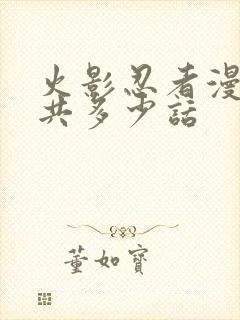 火影忍者漫
共多少話
董如寶